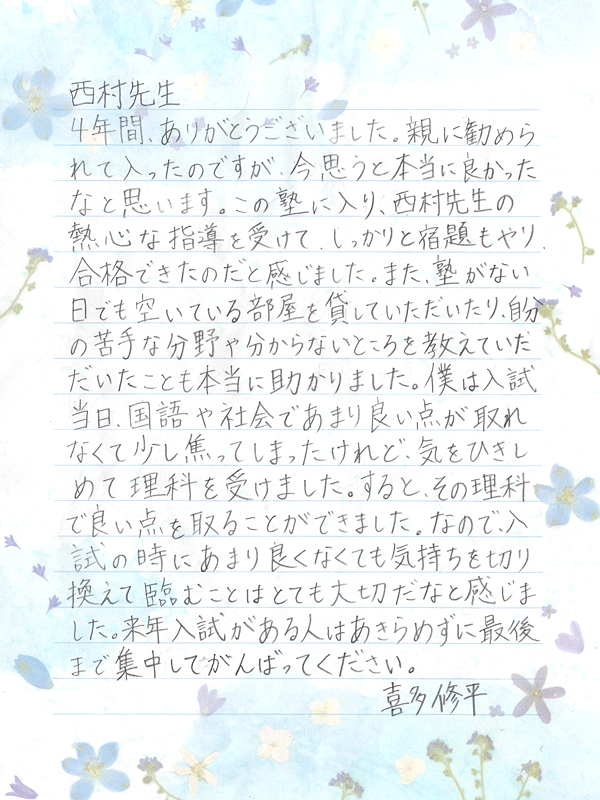 西村先生
4年間、ありがとうございました。親に勧めら
れて入ったのですが、今思うと本当に良かった
なと思います。この塾に入り、西村先生の
熱心な指導を受けて、しっかりと宿題もやり、
合格できたのだと感じました。また、塾がない
日でも空いている部屋を貸していただいたり、自分
の苦手な分野や分からないところを教えていた
だいたことも本当に助かりました。僕は入試
当日、国語や社会であまり良い点が取れ
なくて少し焦ってしまったけれど、気をひきし
めて理科を受けました。すると、その理科
で良い点を取ることができました。なので、入
試の時にあまり良くなくても気持ちを切り
換えて臨むことはとても大切だなと感じま
した。来年入試がある人はあきらめずに最後
まで集中してがんばってください。
喜多修平